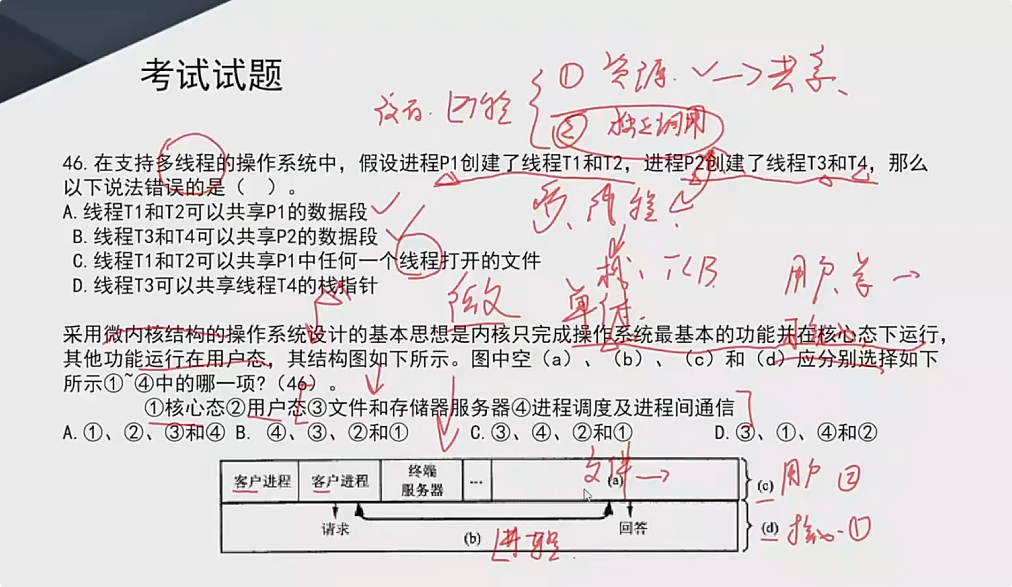 考试试题
① 资源 → 共享
② 独立调用
46.在支持多线程的操作系统中，假设进程P1创建了线程T1和T2，进程P2创建了线程T3和T4，那么
以下说法错误的是（ ）。
A.线程T1和T2可以共享P1的数据段
B.线程T3和T4可以共享P2的数据段
C.线程T1和T2可以共享P1中任何一个线程打开的文件
D.线程T3可以共享线程T4的栈指针
栈、TCB
采用微内核结构的操作系统设计的基本思想是内核只完成操作系统最基本的功能并在核心态下运行，
其他功能运行在用户态，其结构图如下所示。图中空（a）、（b）、（c）和（d）应分别选择如下
所示①~④中的哪一项?（46）。
①核心态②用户态③文件和存储器服务器④进程调度及进程间通信
A.①、②、③和④ B. ④、③、②和① C.③、④、②和① D.③、①、④和②
客户进程 客户进程 终端服务器 … 文件 → (a) (c) 用户 ②
请求 (b) 进程 回答 (d) 核心-①